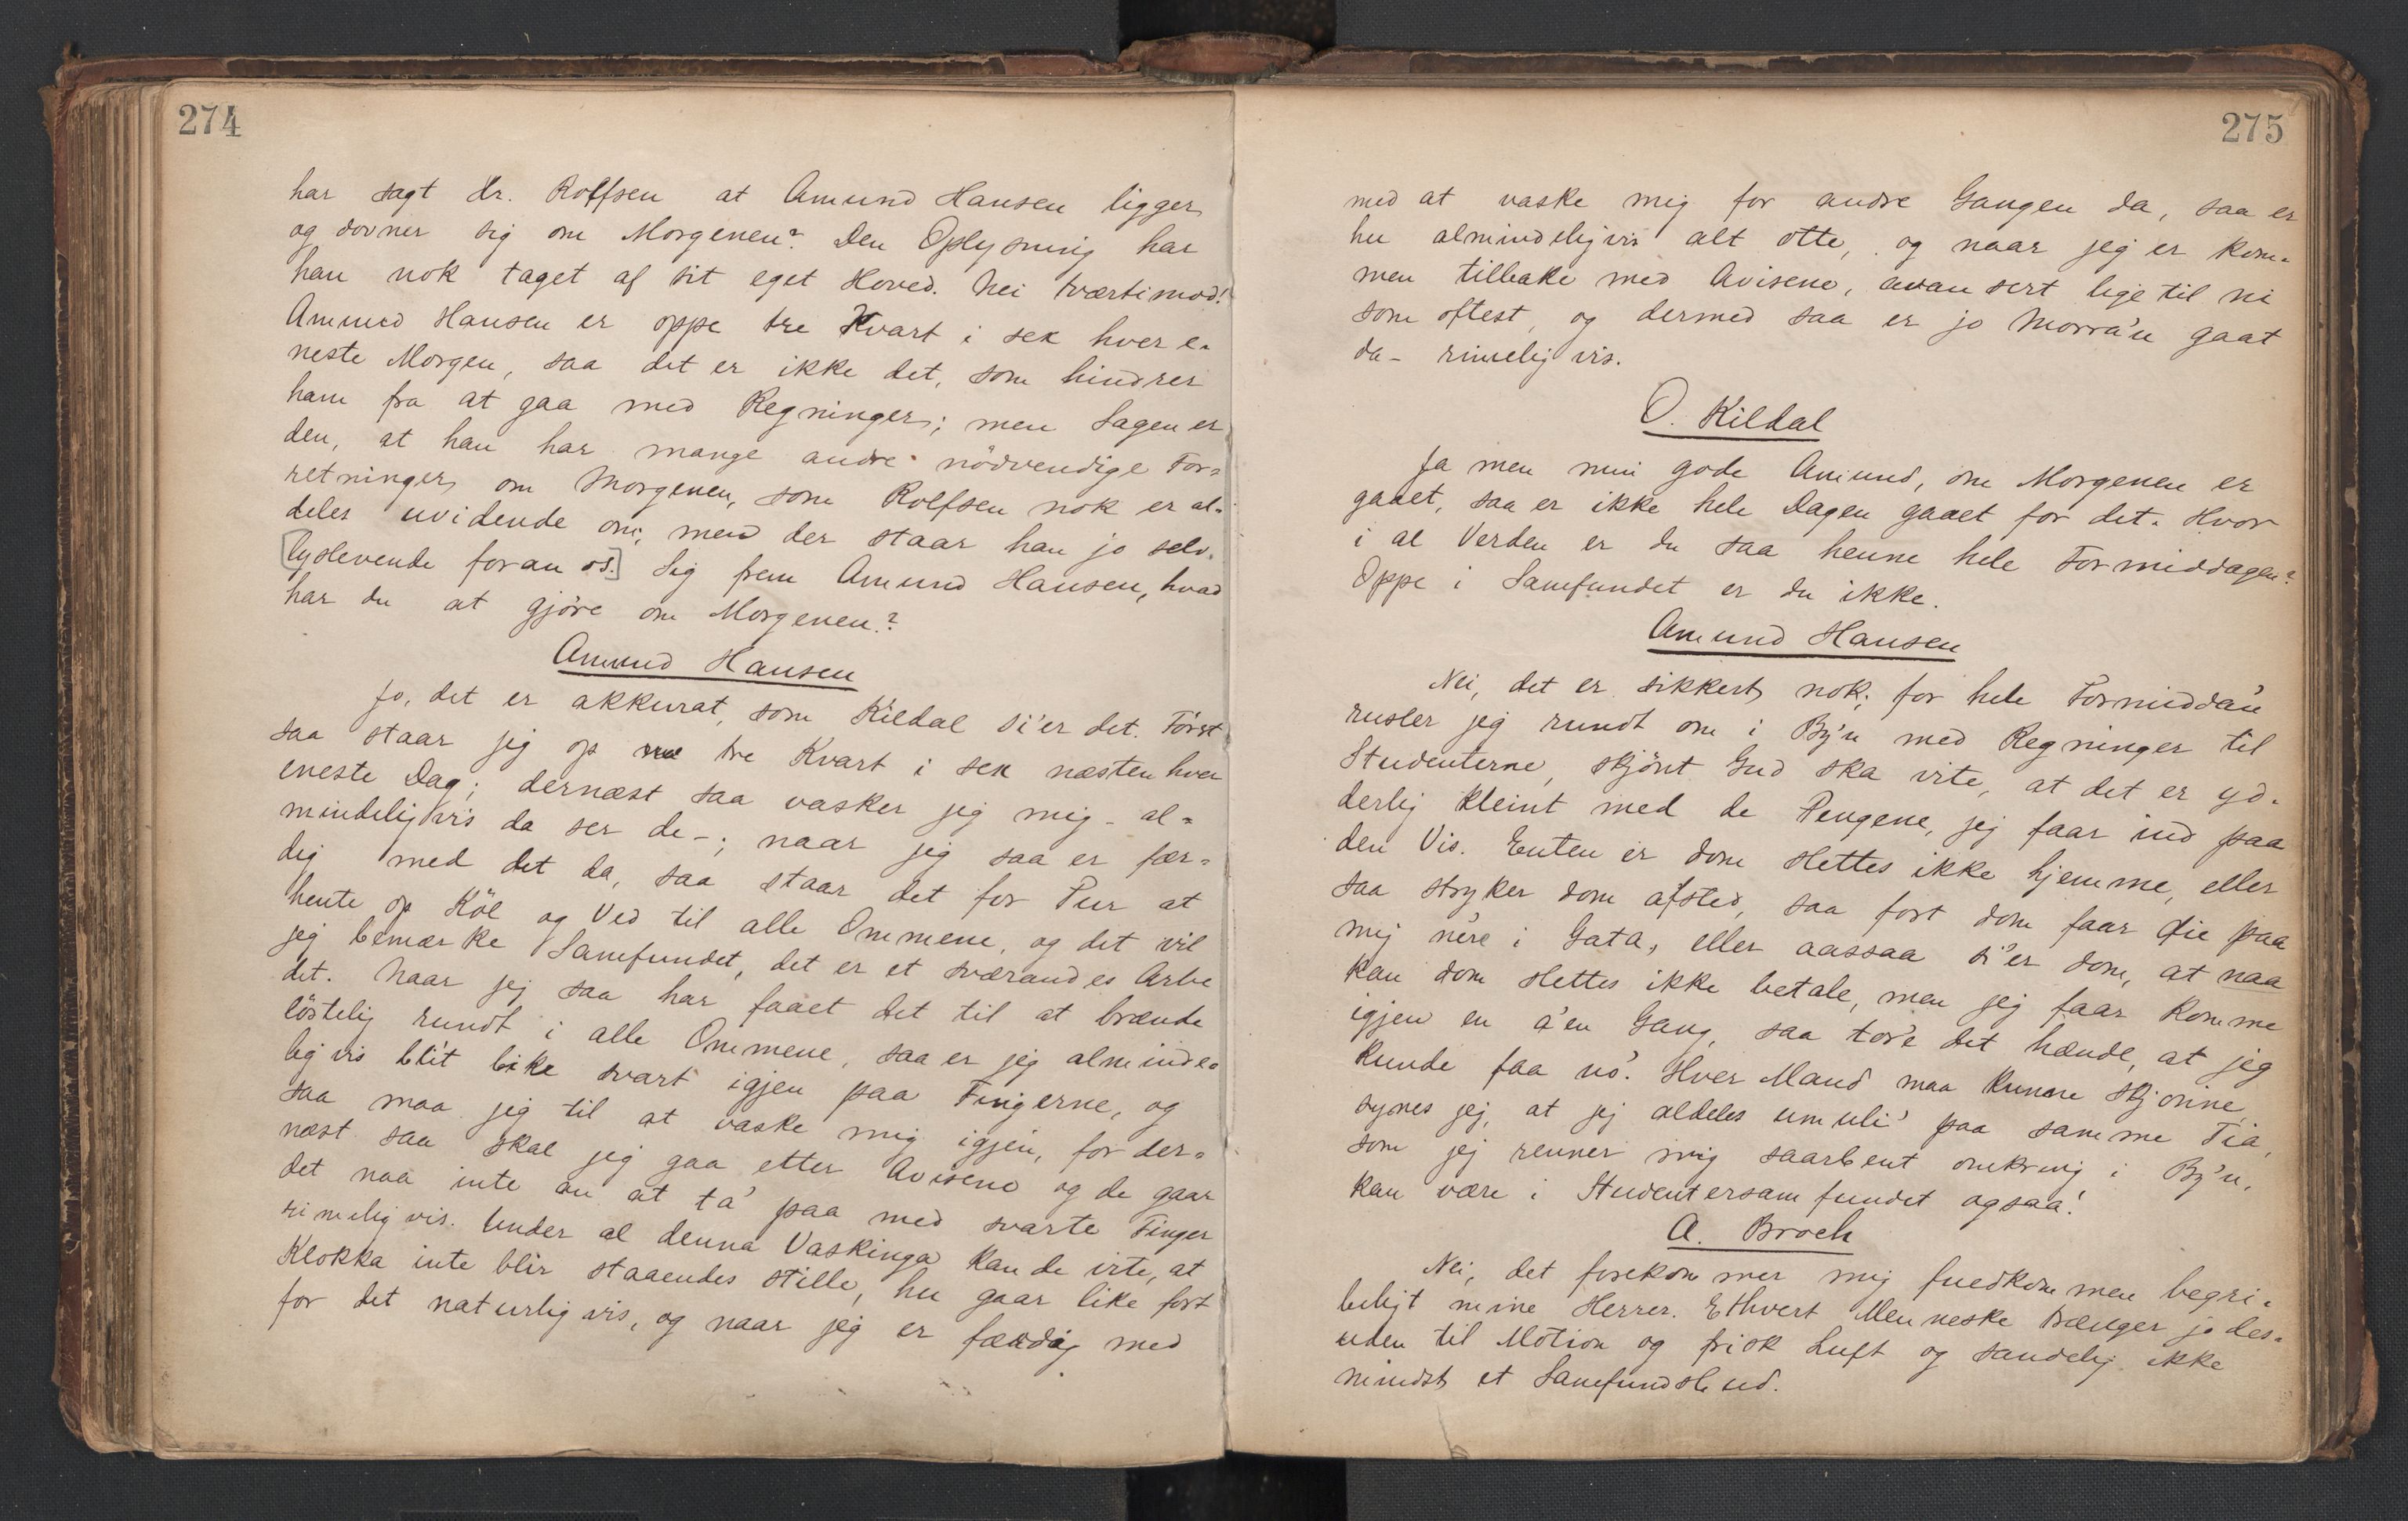 274
har sagt Hr. Rolfsen at Amund Hansen ligger
og dovner sig om Morgenen? Den Oplysning har
han nok taget af sit eget Hoved. Nei tværtimod!
Amund Hansen er oppe tre Kvart i sex hver e-
neste Morgen, saa det er ikke det, som hindrer
ham fra at gaa med Regninger; men Sagen er
den, at han har mange andre nödvendige For-
retninger om Morgenen, som Rolfsen nok er al-
deles uvidende om; men der staar han jo selv.
[lyslevende foran os.] Sig frem Amund Hansen, hvad
har du at gjöre om Morgenen?
Amund Hansen
Jo, det er akkurat, som Kildal si'er det. Först
saa staar jeg op tre Kvart i sex næsten hver
eneste Dag; dernæst saa vasker jeg mig - al-
mindeligvis da ser de -; naar jeg saa er fær-
dig med det da, saa staar det for Tur at
hente op Köl og Ved til alle Ommene, og det vil
jeg bemærke Samfundet, det er et sværandes Arbe
det. Naar jeg saa har faaet det til at brænde
löstelig rundt i alle Ommene, saa er jeg alminde-
ligvis blit like svart igjen paa Fingerne, og
saa maa jeg til at vaske mig igjen, for der-
næst saa skal jeg gaa etter Avisene og de gaar
det naa inte an at ta' paa med svarte Finger
rimeligvis. Under al denna Vaskinga kan de vite, at
Klokka inte blir staaendes stille, hu gaar like fort
for det naturligvis, og naar jeg er færdig med
275
med at vaske mig for andre Gangen da, saa er
hu almindeligvis alt otte, og naar jeg er kom-
men tilbake med Avisene, avansert lige til ni
som oftest, og dermed saa er jo Morra'n gaat
da - rimeligvis.
O. Kildal
Ja men min gode Amund, om Morgenen er
gaaet, saa er ikke hele Dagen gaaet for det. Hvor
i al Verden er du saa henne hele Formiddagen?
Oppe i Samfundet er du ikke.
Amund Hansen
Nei, det er sikkert nok; for hele Formidda'n
rusler jeg rundt om i By'n med Regninger til
Studenterne, skjönt Gud ska vite, at det er yd-
derlig kleint med de Pengene, jeg faar ind paa
den Vis. Enten er dom slettes ikke hjemme, eller
saa stryker dom afsted, saa fort dom faar öie paa
mig né're i Gata, eller aassaa si'er dom, at naa
kan dom slettes ikke betale, men jeg faar komme
igjen en a'en Gang, saa tor'e det hænde, at jeg
kunde faa no'. Hver Mand maa kunne skjönne
synes jeg, at jeg aldeles umuli' paa samme Tia,
som jeg renner mig saarbent omkring i By'n,
kan være i Studentersamfundet ogsaa!
A. Broch
Nei, det forekommer mig fuldkommen begri-
beligt mine Herrer. Ethvert Menneske trænger jo des-
uden til Motion og frisk Luft og sandelig ikke
mindst et Samfundsbud.